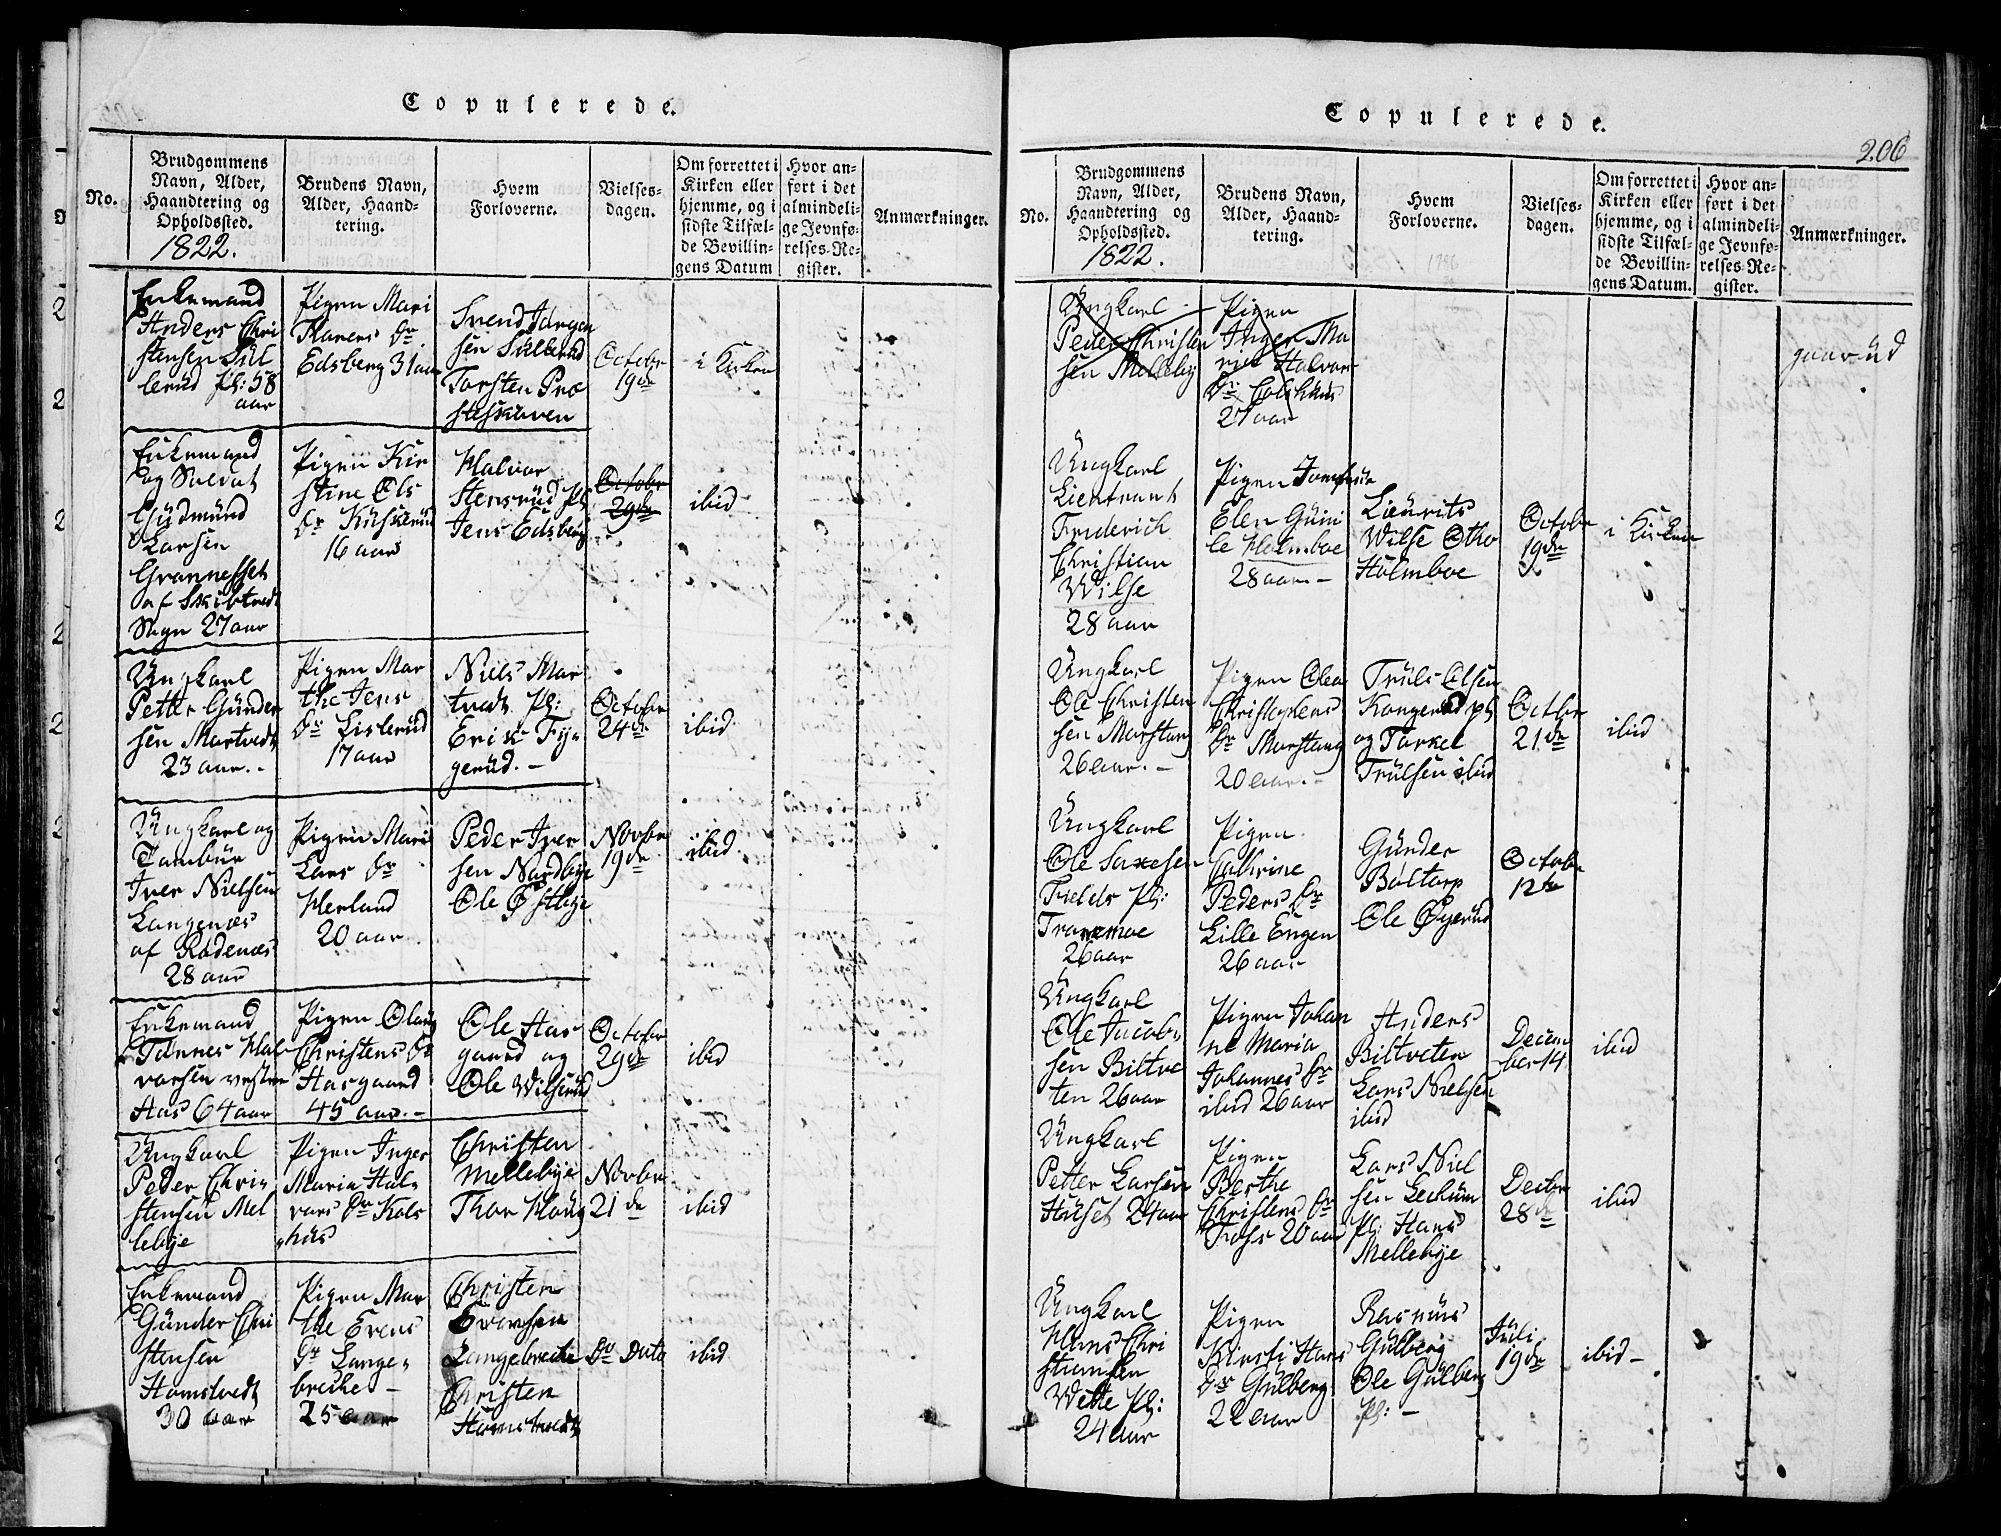 Copulerede.
No.
Brudgommens
Navn, Alder,
Haandtering og
Opholdssted.
1822.
Brudens Navn,
Alder, Haand-
tering.
Hvem
Forloverne.
Vielses-
dagen.
Om forrettet i
Kirken eller
hjemme, og i
sidste Tilfæl-
de Bevillin-
gens Datum
Hvor an-
ført i det
almindeli-
ge Jevnfø-
relses-Re-
gister.
Anmærkninger.
Enkemand
Anders Chri
stensen Sül
lerud pl: 58
aar
Pigen Mari
Larens Dr
Edsberg 31 aar
Svend Jørgen
sen Süllerüd
Torsten Præ
steskoven
Octobr
19de
i Kirken
Enkemand
og Soldat
Güdmünd
Larsen
Grannesset
af Skibtvedt
Sogn 27 aar
Pigen Kir
stine Ols
Dr Küskerüd
16 aar
Halvor
Stensrüd pl
Jens Edsberg
Octobr
29de
ibid
Ungkarl
Petter Günder
sen Martvedt
23 aar.-
Pigen Mar
the Jens
Dr Lislerüd
17 aar
Niels Mar
tvedt pl:
Erik Fy
gerüd.-
Octobr
24de
ibid
Ungkarl og
Tambür
Iver Nielsen
Langenæs
af Rødenæs
28 aar
Pigen Mari
Lars Dr
Herland
20 aar
Peder Iver
sen Nordbye
Ole Østbye
Novbr
19de
ibid
Enkemand
Tønnes Hal
vorsen vestre
Aas 64 aar
Pigen Olaug
Christens Dr
Aasgaard
45 aar.-
Ole Aas
gaard og
Ole Wilserüd
Octobr
29de
ibid
Ungkarl
Peder Chri
stensen Mel
lebye
Pigen Inger
Maria Hal
vors Dr Kols
hüs
Christen
Mellebye
Thor Haug
Novbr
21de
ibid
Enkemand
Günder Chri
stensen
Homstvedt
30 aar
Pigen Mar
the Evens
Dr Lange
breche -
25 aar
Christen
Evensen
Langebreche
Christen
Homstvedt
Do Dato
ibid
Copulerede.
206
No.
Brudgommens
Navn, Alder,
Haandtering og
Opholdssted.
1822.
Brudens Navn,
Alder, Haand-
tering.
Hvem
Forloverne.
Vielses-
dagen.
Om forrettet i
Kirken eller
hjemme, og i
sidste Tilfæl-
de Bevillin-
gens Datum.
Hvor an-
ført i det
almindeli-
ge Jevnfø-
relses-Re-
gister.
Anmærkninger.
Ungkarl
Peder Christen
sen Mellebÿ
Pigen
Inger Ma
rie Halvor
Dr Kolshüs
27 aar
gaar ud
Ungkarl
Lieutnant
Friderich
Christian
Wilse
28 aar
Pigen Jomfrüe
Elen Güni
le Holmboe
28 aar.-
Laürits
Wilse Otho
Holmboe
Octobr
19de
i Kirken
Ungkarl
Ole Christen
sen Morstang
26 aar.-
Pigen Olea
Christophers
Dr Morstang
20 aar.-
Trüls Olsen
Kongerød pl
og Torkel
Trülsen ibid
Octbr
21de
ibid
Ungkarl
Ole Saxesen
Fields pl:
Tronemoe
26 aar
Pigen
Cathrine
Peders Dr
Lille Engen
26 aar
Günder
Boltorp
Ole Øyerüd
Octobr
12te
Ungkarl
Ole Jacob
sen Biltve
ten 26 aar
Pigen Johan
ne Maria
Johannes Dr
ibid 26 aar
Anders
Biltveten
Lars Nielsen
ibid
Decem
ber 14
ibid
Ungkarl
Petter Larsen
Hüset 24 aar
Pigen
Berthe
Christens Dr
Foss 20 aar
Lars Niel
sen Lechüm
pl: Hans
Mellebye
Decbr
28de
ibid
Ungkarl
Hans Chri
stiansen
Wette pl:
24 aar
Pigen
Kirsti Hans
Dr Gülberg
22 aar
Rasmüs
Gülberg
Ole Gülberg
pl: -
Jüli
19de
ibid-